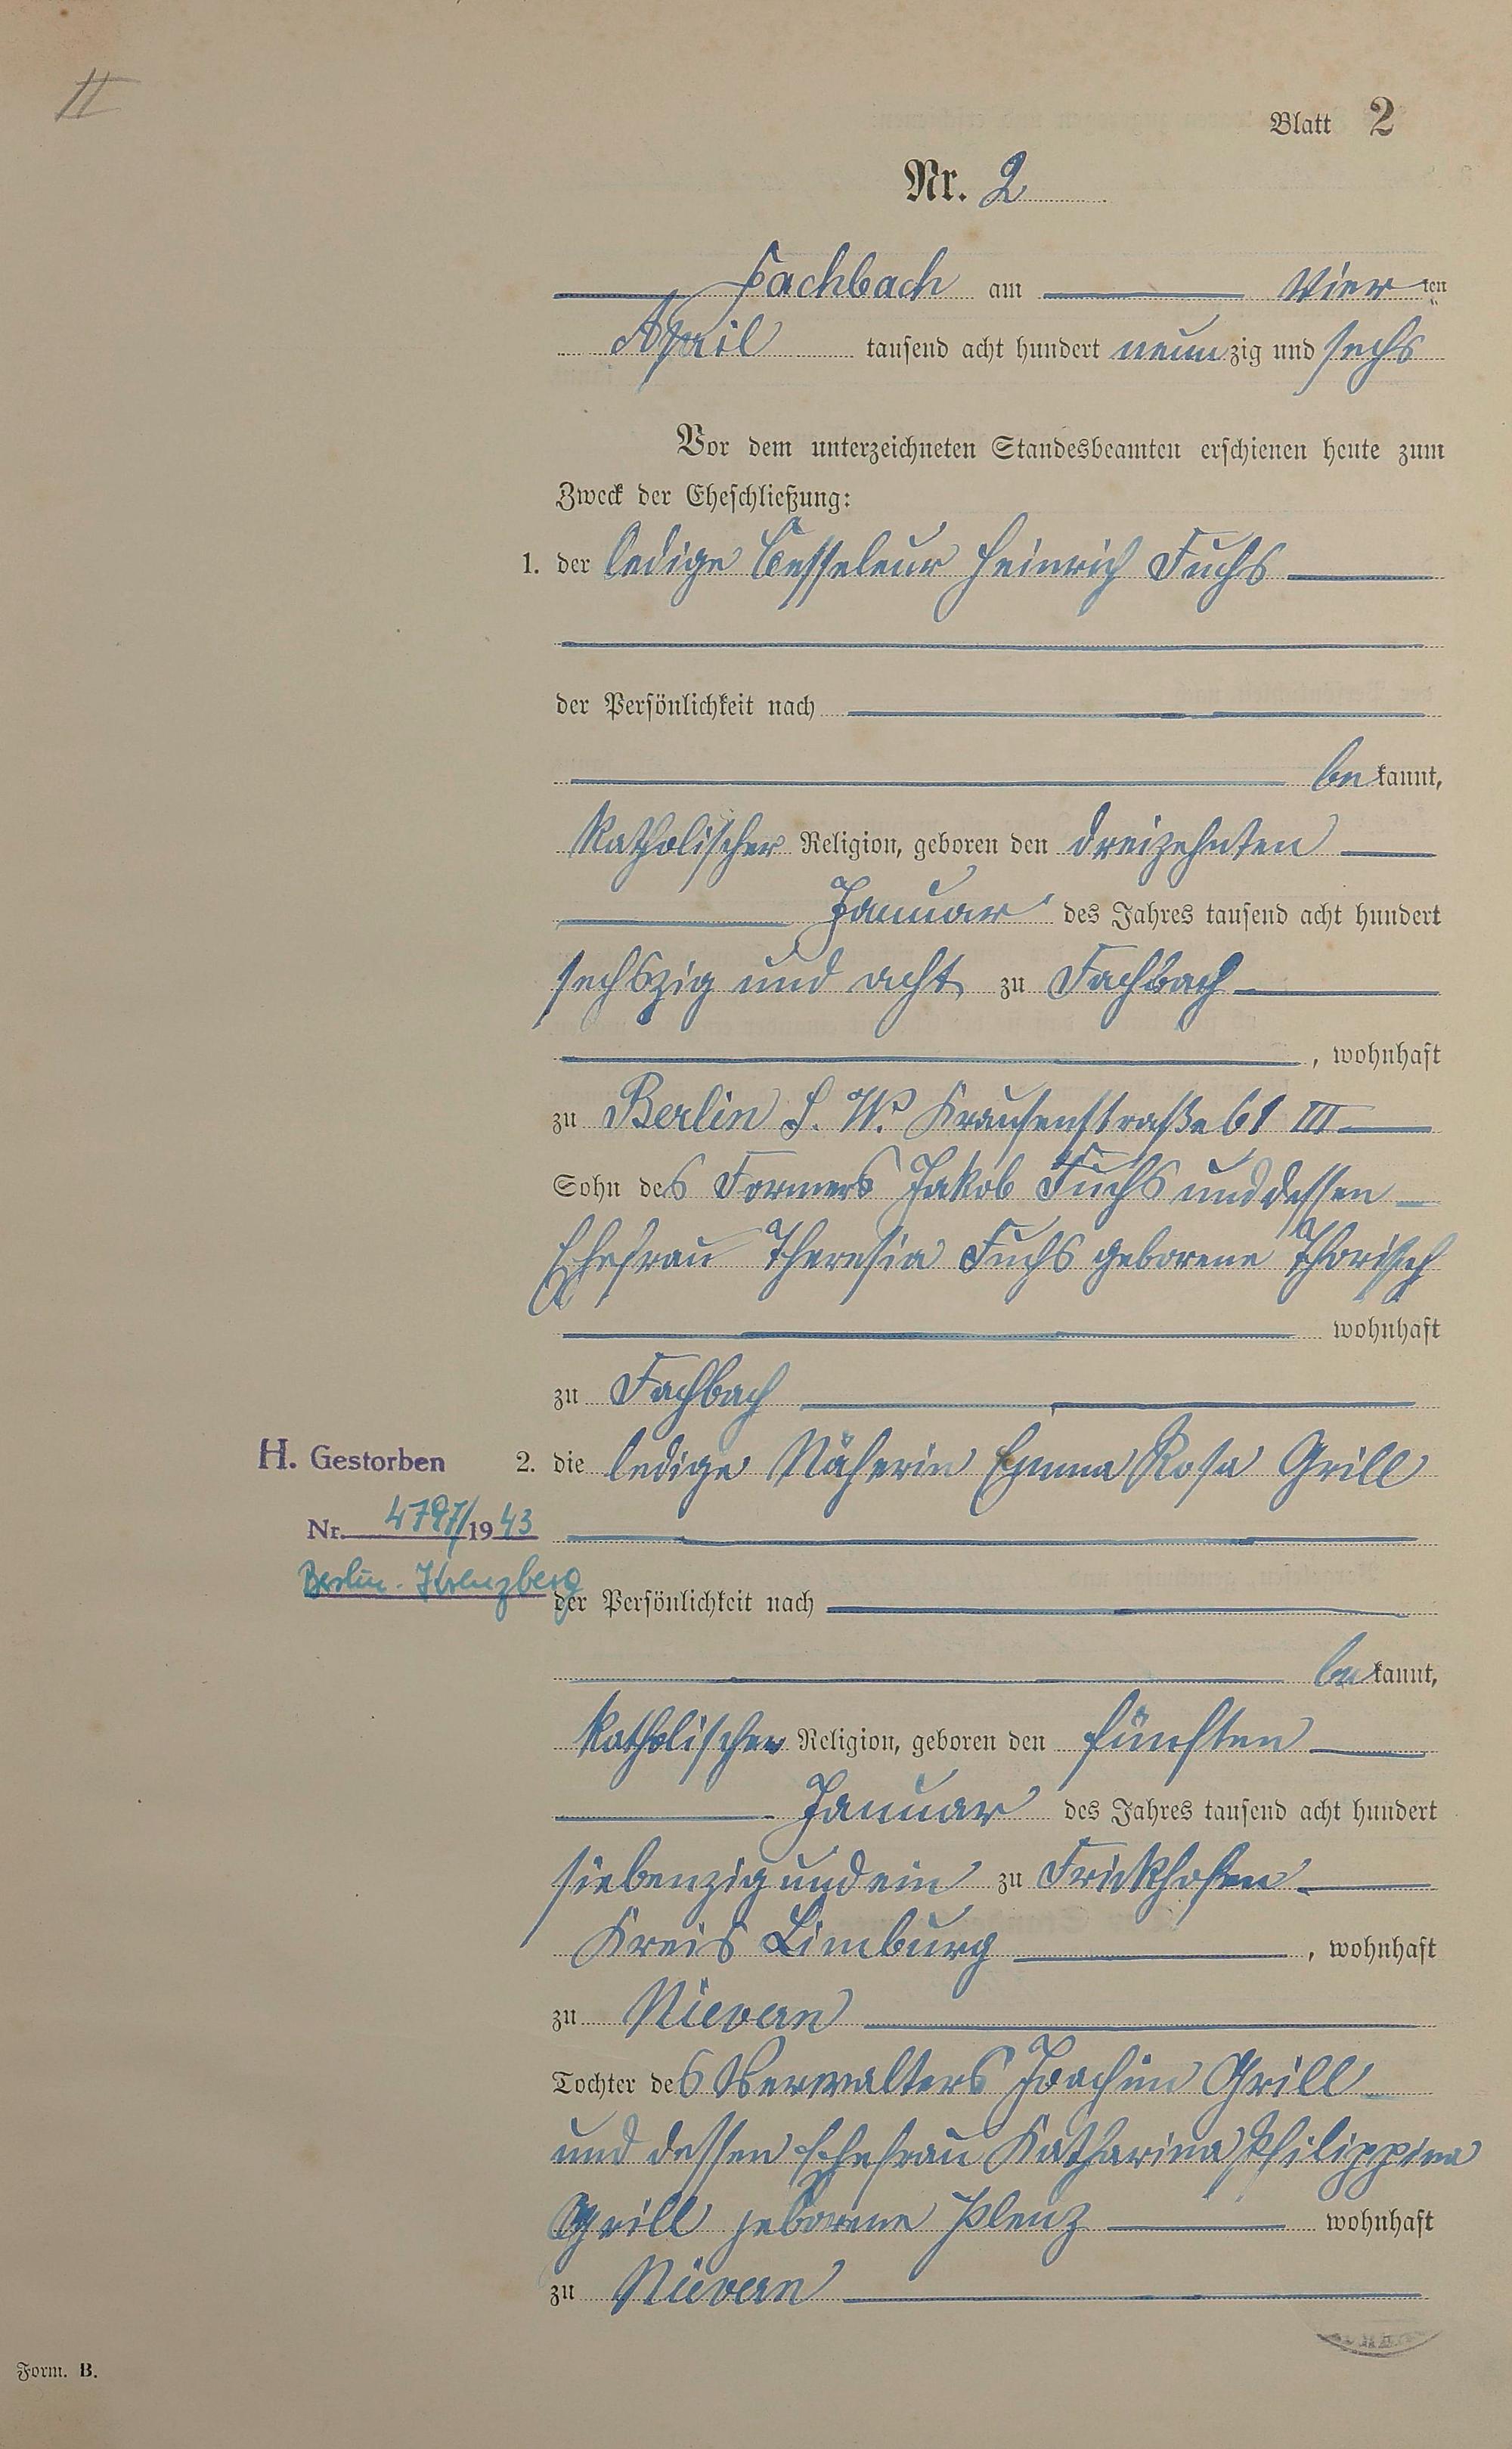 II
Blatt 2
Nr. 2
Fachbach am Vier ten
April tausend acht hundert neunzig und sechs
Vor dem unterzeichneten Standesbeamten erschienen heute zum
Zweck der Eheschließung:
1. der ledige Ciseleur Heinrich Fuchs
der Persönlichkeit nach
be kannt,
katholischer Religion, geboren den dreizehnten
Januar des Jahres tausend acht hundert
sechszig und acht zu Fachbach
, wohnhaft
zu Berlin S. W. Krausenstraße 61 III
Sohn des Formers Jakob Fuchs und dessen
Ehefrau Theresia Fuchs geborene
wohnhaft
zu Fachbach
H. Gestorben
2. die ledige Näherin Emma Rosa Grill
Nr. 4797/1943
Berlin-Kreuzberg
der Persönlichkeit nach
be kannt,
katholischer Religion, geboren den fünften
Januar des Jahres tausend acht hundert
siebenzig und ein zu Frickhofen
Kreis Limburg , wohnhaft
zu Nievern
Tochter des Verwalters Joachim Grill
und dessen Ehefrau Katharina Philippina
Grill geborene Plenz wohnhaft
zu Nievern
Form. B.